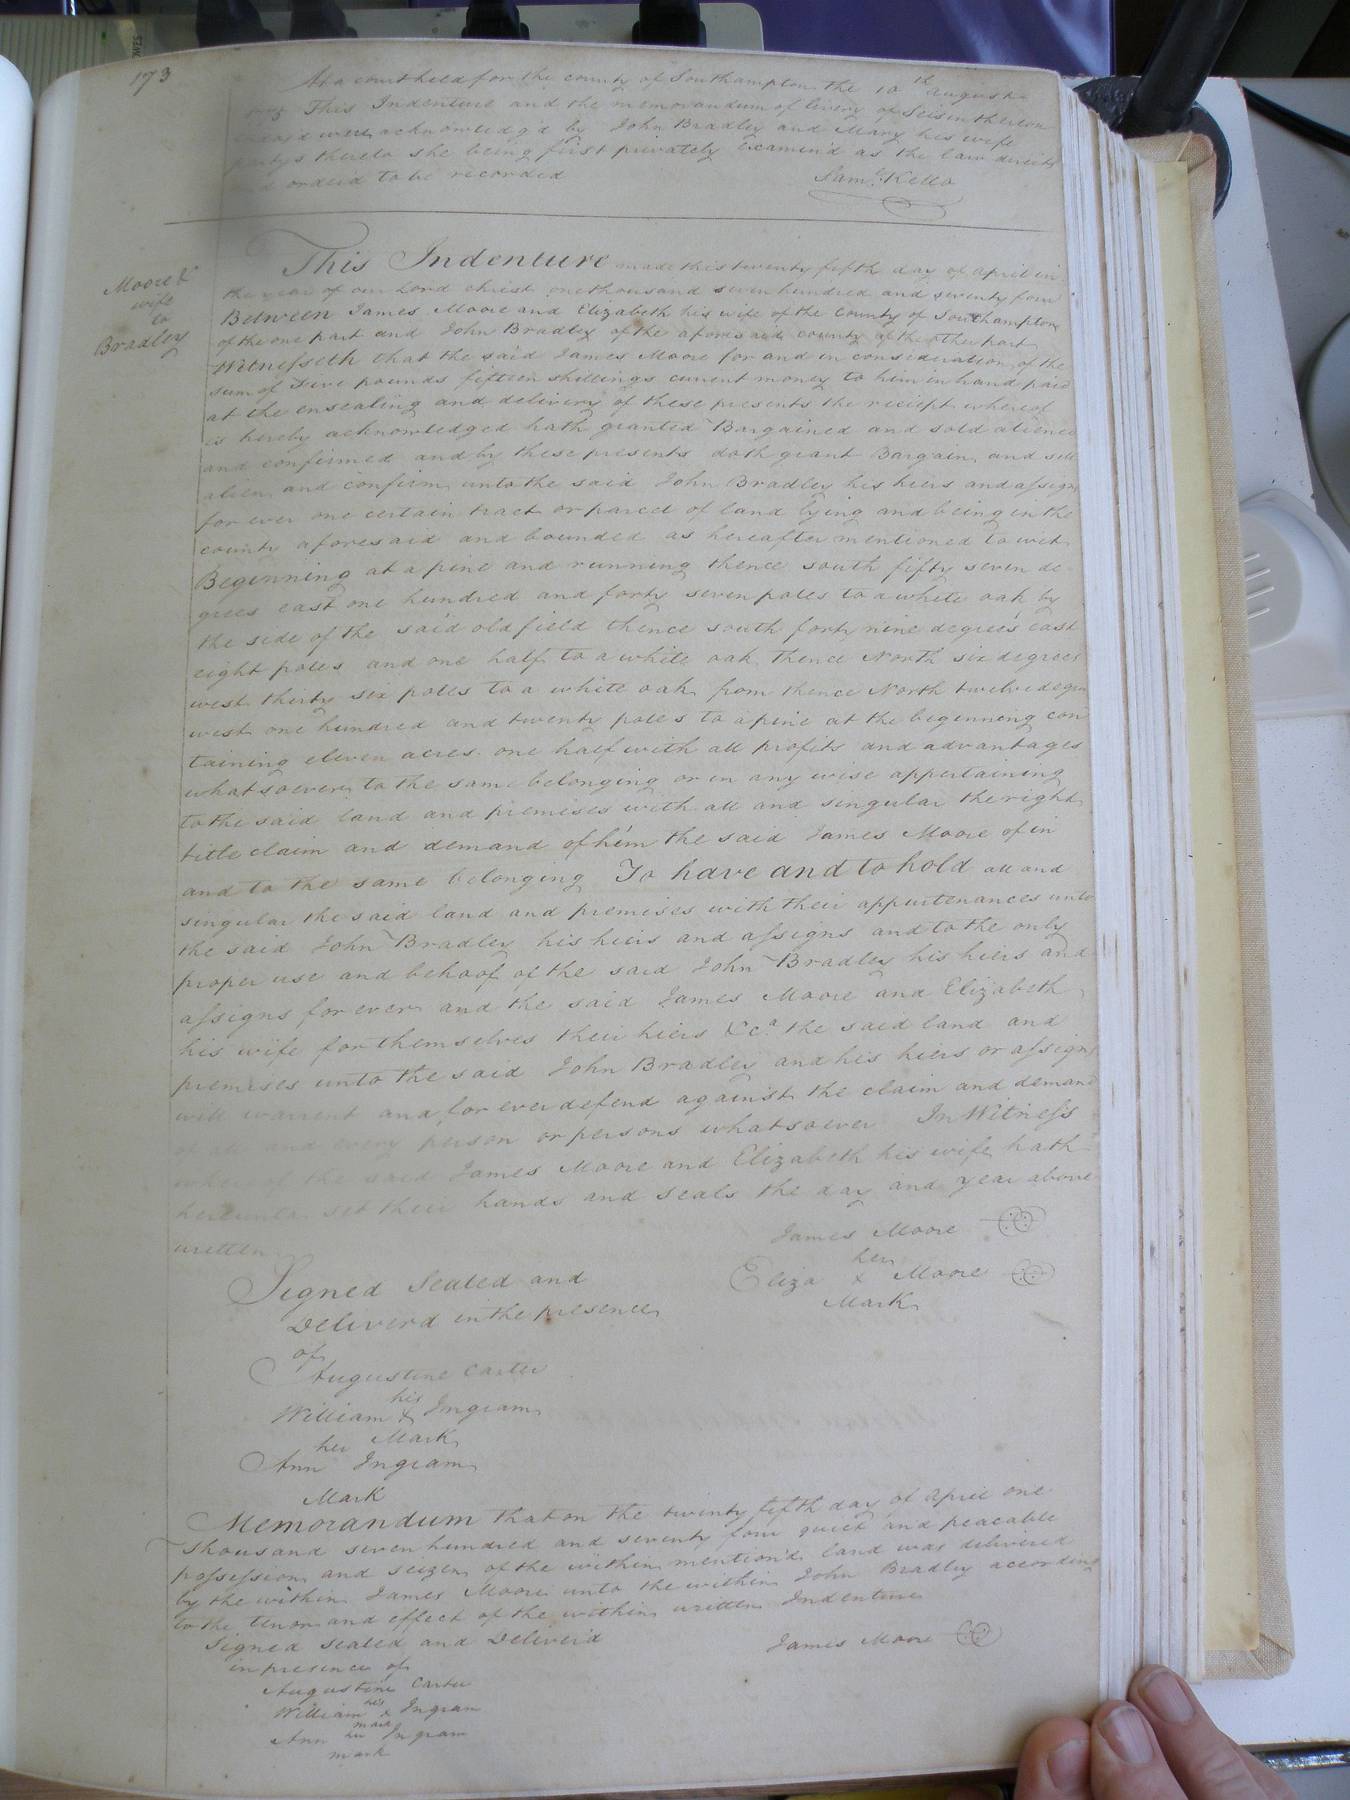 173
At a court held for the county of Southampton the 10th august
This Indenture and the memorandum of livery of Seisin thereon
were acknowledg'd by John Bradley and Mary his wife
partys thereto she being first privately Examin'd as the law directs
ordeid to be recorded
Saml. Kello
Moore &
wife
to
Bradley
This Indenture made this twenty fifth day of april in
the year of our Lord christ onethousand seven hundred and seventy four
Between James Moore and Elizabeth his wife of the County of Southampton
of the one part and John Bradley of the aforesaid county of the other part
Witnesseth that the said James Moore for and in consideration of the
sum of Five pounds fifteen shillings current money to him in hand paid
at the ensealing and delivery of these presents the reciept whereof
is hereby acknowledged hath granted Bargained and sold aliened
and confirmed and by these presents doth grant Bargain and sell
alien and confirm unto the said John Bradley his heirs and assigns
for ever one certain tract or parcel of land lying and being in the
county aforesaid and bounded as hereafter mentioned to wit
Beginning at a pine and running thence south fifty seven de
grees east one hundred and forty seven poles to a white oak by
the side of the said old field thence south forty nine degrees east
eight poles and one half to a white oak thence North six degrees
west thirty six poles to a white oak from thence North twelve degrees
west one hundred and twenty poles to a pine at the beginning con
taining eleven acres one half with all profits and advantages
whatsoever to the same belonging or in any wise appertaining
to the said land and premises with all and singular the right
title claim and demand of him the said James Moore of in
and to the same belonging To have and to hold all and
singular the said land and premises with their appurtenances unto
the said John Bradley his heirs and assigns and to the only
proper use and behoof of the said John Bradley his heirs and
assigns for ever and the said James Moore and Elizabeth
his wife for themselves their heirs &ca. the said land and
premises unto the said John Bradley and his heirs or assigns
will warrent and for ever defend against the claim and demand
of all and every person or persons whatsoever In Witness
whereof the said James Moore and Elizabeth his wife hath
hereunto set their hands and seals the day and year above
written
James Moore
her
Eliza x Moore
Mark
Signed Sealed and
Deliverd in the presence
of
Augustine Carter
his
William x Ingram
Mark
her
Ann Ingram
Mark
Memorandum that on the twenty fifth day of april one
thousand seven hundred and seventy four quiet and peacable
possession and seizen of the within mention'd land was delivered
by the within James Moore unto the within John Bradley according
to the tenor and effect of the within written Indenture
James Moore
Signed sealed and Deliver'd
in presence of
Augustine Carter
his
William x Ingram
mark
Ann her Ingram
mark